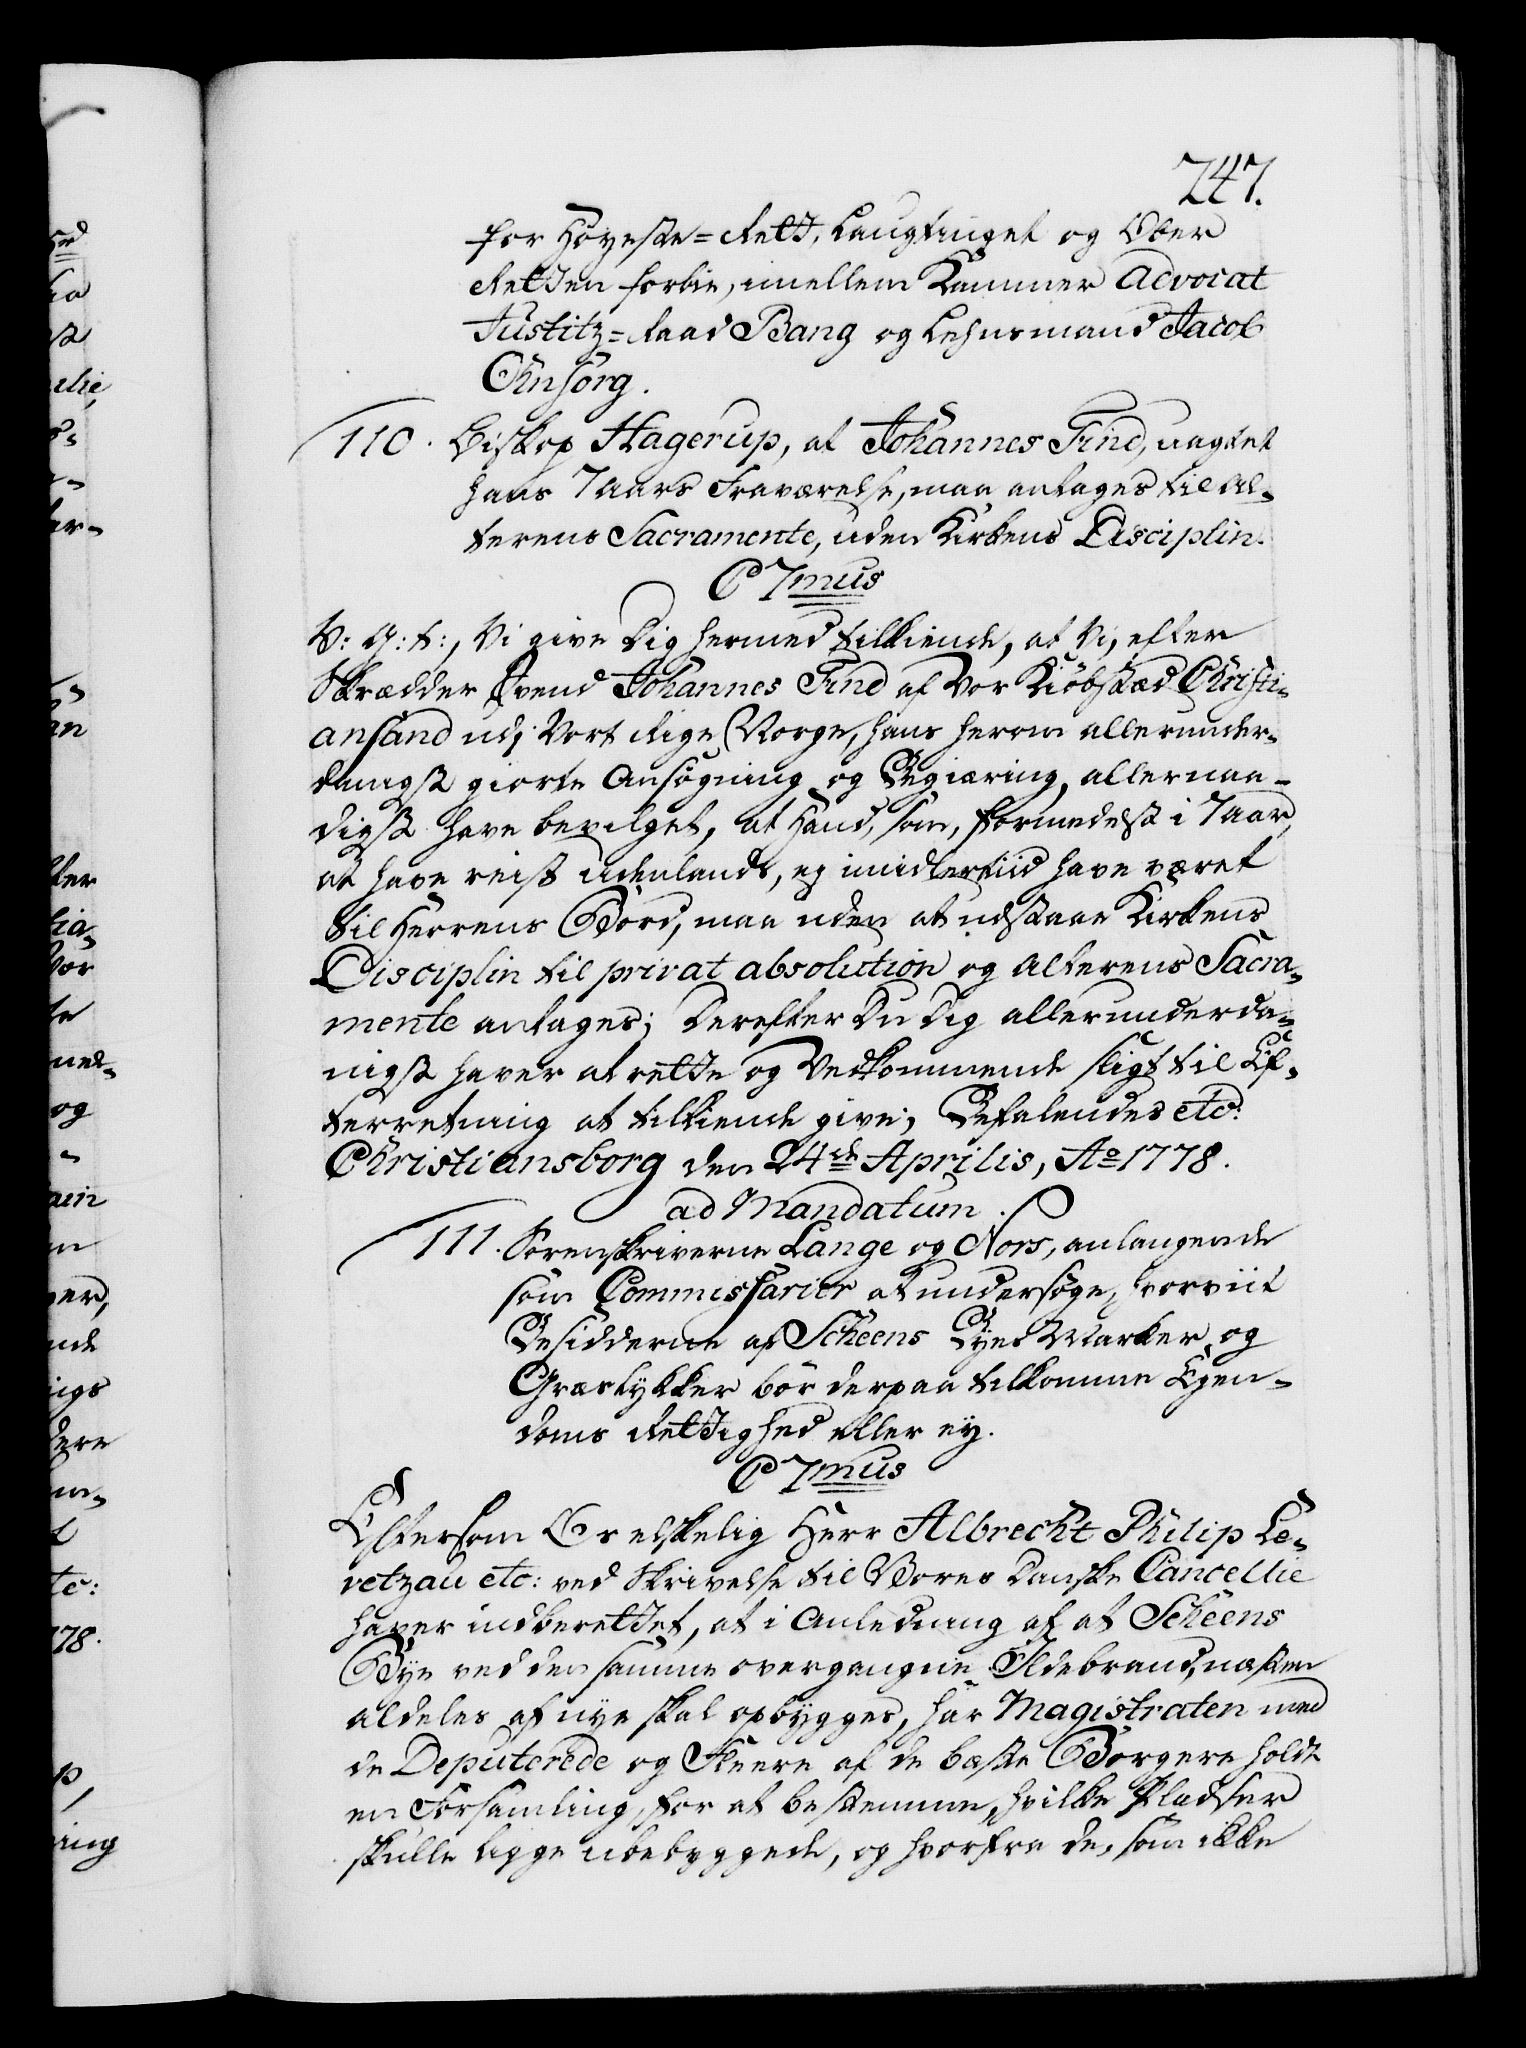 747.
for Høyeste=Rett, Laugtinget og Ober
Retten forbie, imellem Kammer Advocat
Justitz=Raad Bang og Lehnsmand Jacob
Ohnsorg.
110. Biskop Hagerup, at Johannes Find, uagtet
hans 7 Aars Fraværelse, maa antages til Al-
terens Sacramente, uden Kirkens Disciplin.
C 7mus
V: G: T:, Vi give Dig hermed tilkiende, at Vi, efter
Skrædder Svend Johannes Find af Vor Kiøbstæd Christi-
ansand udi Vort Rige Norge, hans herom allerunder-
danigst giorte Ansøgning og Begiæring, allernaa-
digst have bevilget, at Hand, som, formedelst i 7 Aar,
at have reist udenlands, ey imidlertiid have været
til Herrens Bord, maa uden at udstaae Kirkens
Disciplin til privat absolution og Alterens Sacra-
mente antages; Derefter Du Dig allerunderda-
nigst haver at rette og Vedkommende sligt til Ef-
terretning at tilkiende give; Befalendes etc:
Christiansborg den 24de Aprilis, Ao 1778.
ad Mandatum.
111. Sorenskriverne Lange og Nors, anlangende
som Commissarier at undersøge, hvorviit
Besidderne af Scheens Byes Marker og
Græslykker bør derpaa tilkomme Ejen-
doms Rettighed eller ey.
C 7mus
Eftersom Os elskelig Herr Albrecht Philip Le-
vetzau etc: ved Skrivelse til Vores Danske Cancellie
haver indberettet, at i Anledning af at Scheens
Bye ved den samme overgangne Ildebrand, næsten
aldeles af nye skal opbygges, har Magistraten med
de Deputerede og Fleere af de bæste Borgere holdt
en Forsamling, for at bestemme, hvilke Pladser
skulle ligge ubebyggede, og hvorfra de, som ikke